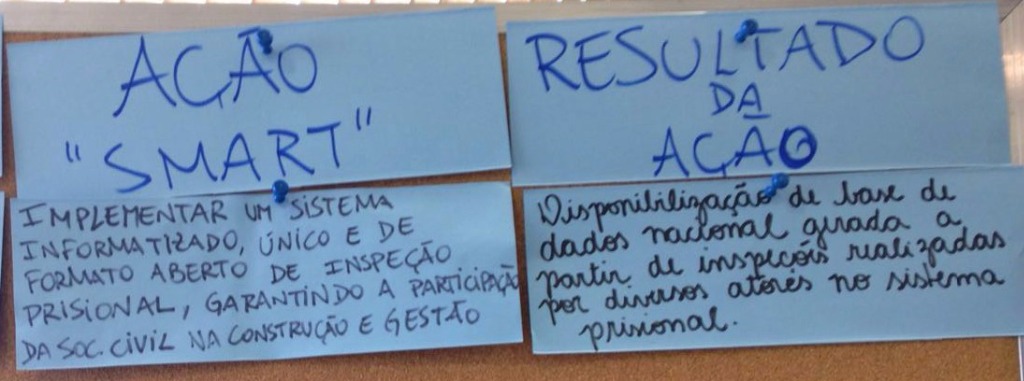 AÇÃO
"SMART"
IMPLEMENTAR UM SISTEMA
INFORMATIZADO, ÚNICO E DE
FORMATO ABERTO DE INSPEÇÃO
PRISIONAL, GARANTINDO A PARTICIPAÇÃO
DA SOC. CIVIL NA CONSTRUÇÃO E GESTÃO
RESULTADO
DA
AÇÃO
Disponibilização de base de
dados nacional gerada a
partir de inspeções realizadas
por diversos atores no sistema
prisional.